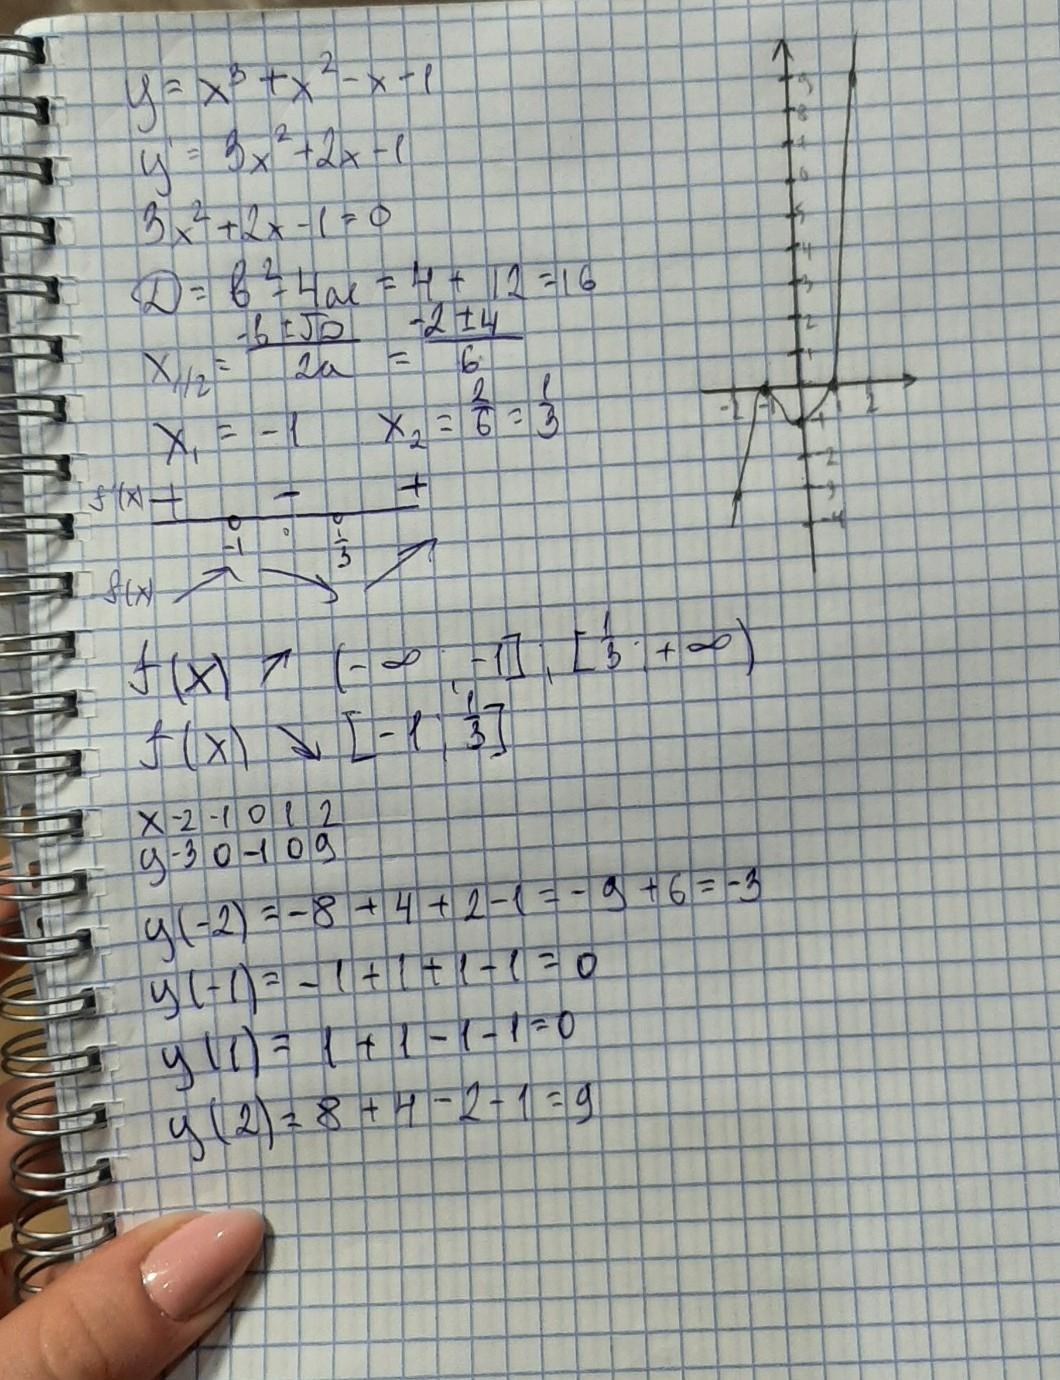 y = x³ + x² - x - 1
y' = 3x² + 2x - 1
3x² + 2x - 1 = 0
D = b² - 4ac = 4 + 12 = 16
x₁/₂ = (-b ± √D)/2a = (-2 ± 4)/6
x₁ = -1 x₂ = 2/6 = 1/3
f'(x) + - +
-1 0 1/3
f(x)
f(x) ↗ (-∞; -1], [1/3; +∞)
f(x) ↘ [-1; 1/3]
x -2 -1 0 1 2
y -3 0 -1 0 9
y(-2) = -8 + 4 + 2 - 1 = -9 + 6 = -3
y(-1) = -1 + 1 + 1 - 1 = 0
y(1) = 1 + 1 - 1 - 1 = 0
y(2) = 8 + 4 - 2 - 1 = 9
9
8
7
6
5
4
3
2
1
-2 -1 1 2
-1
-2
-3
-4